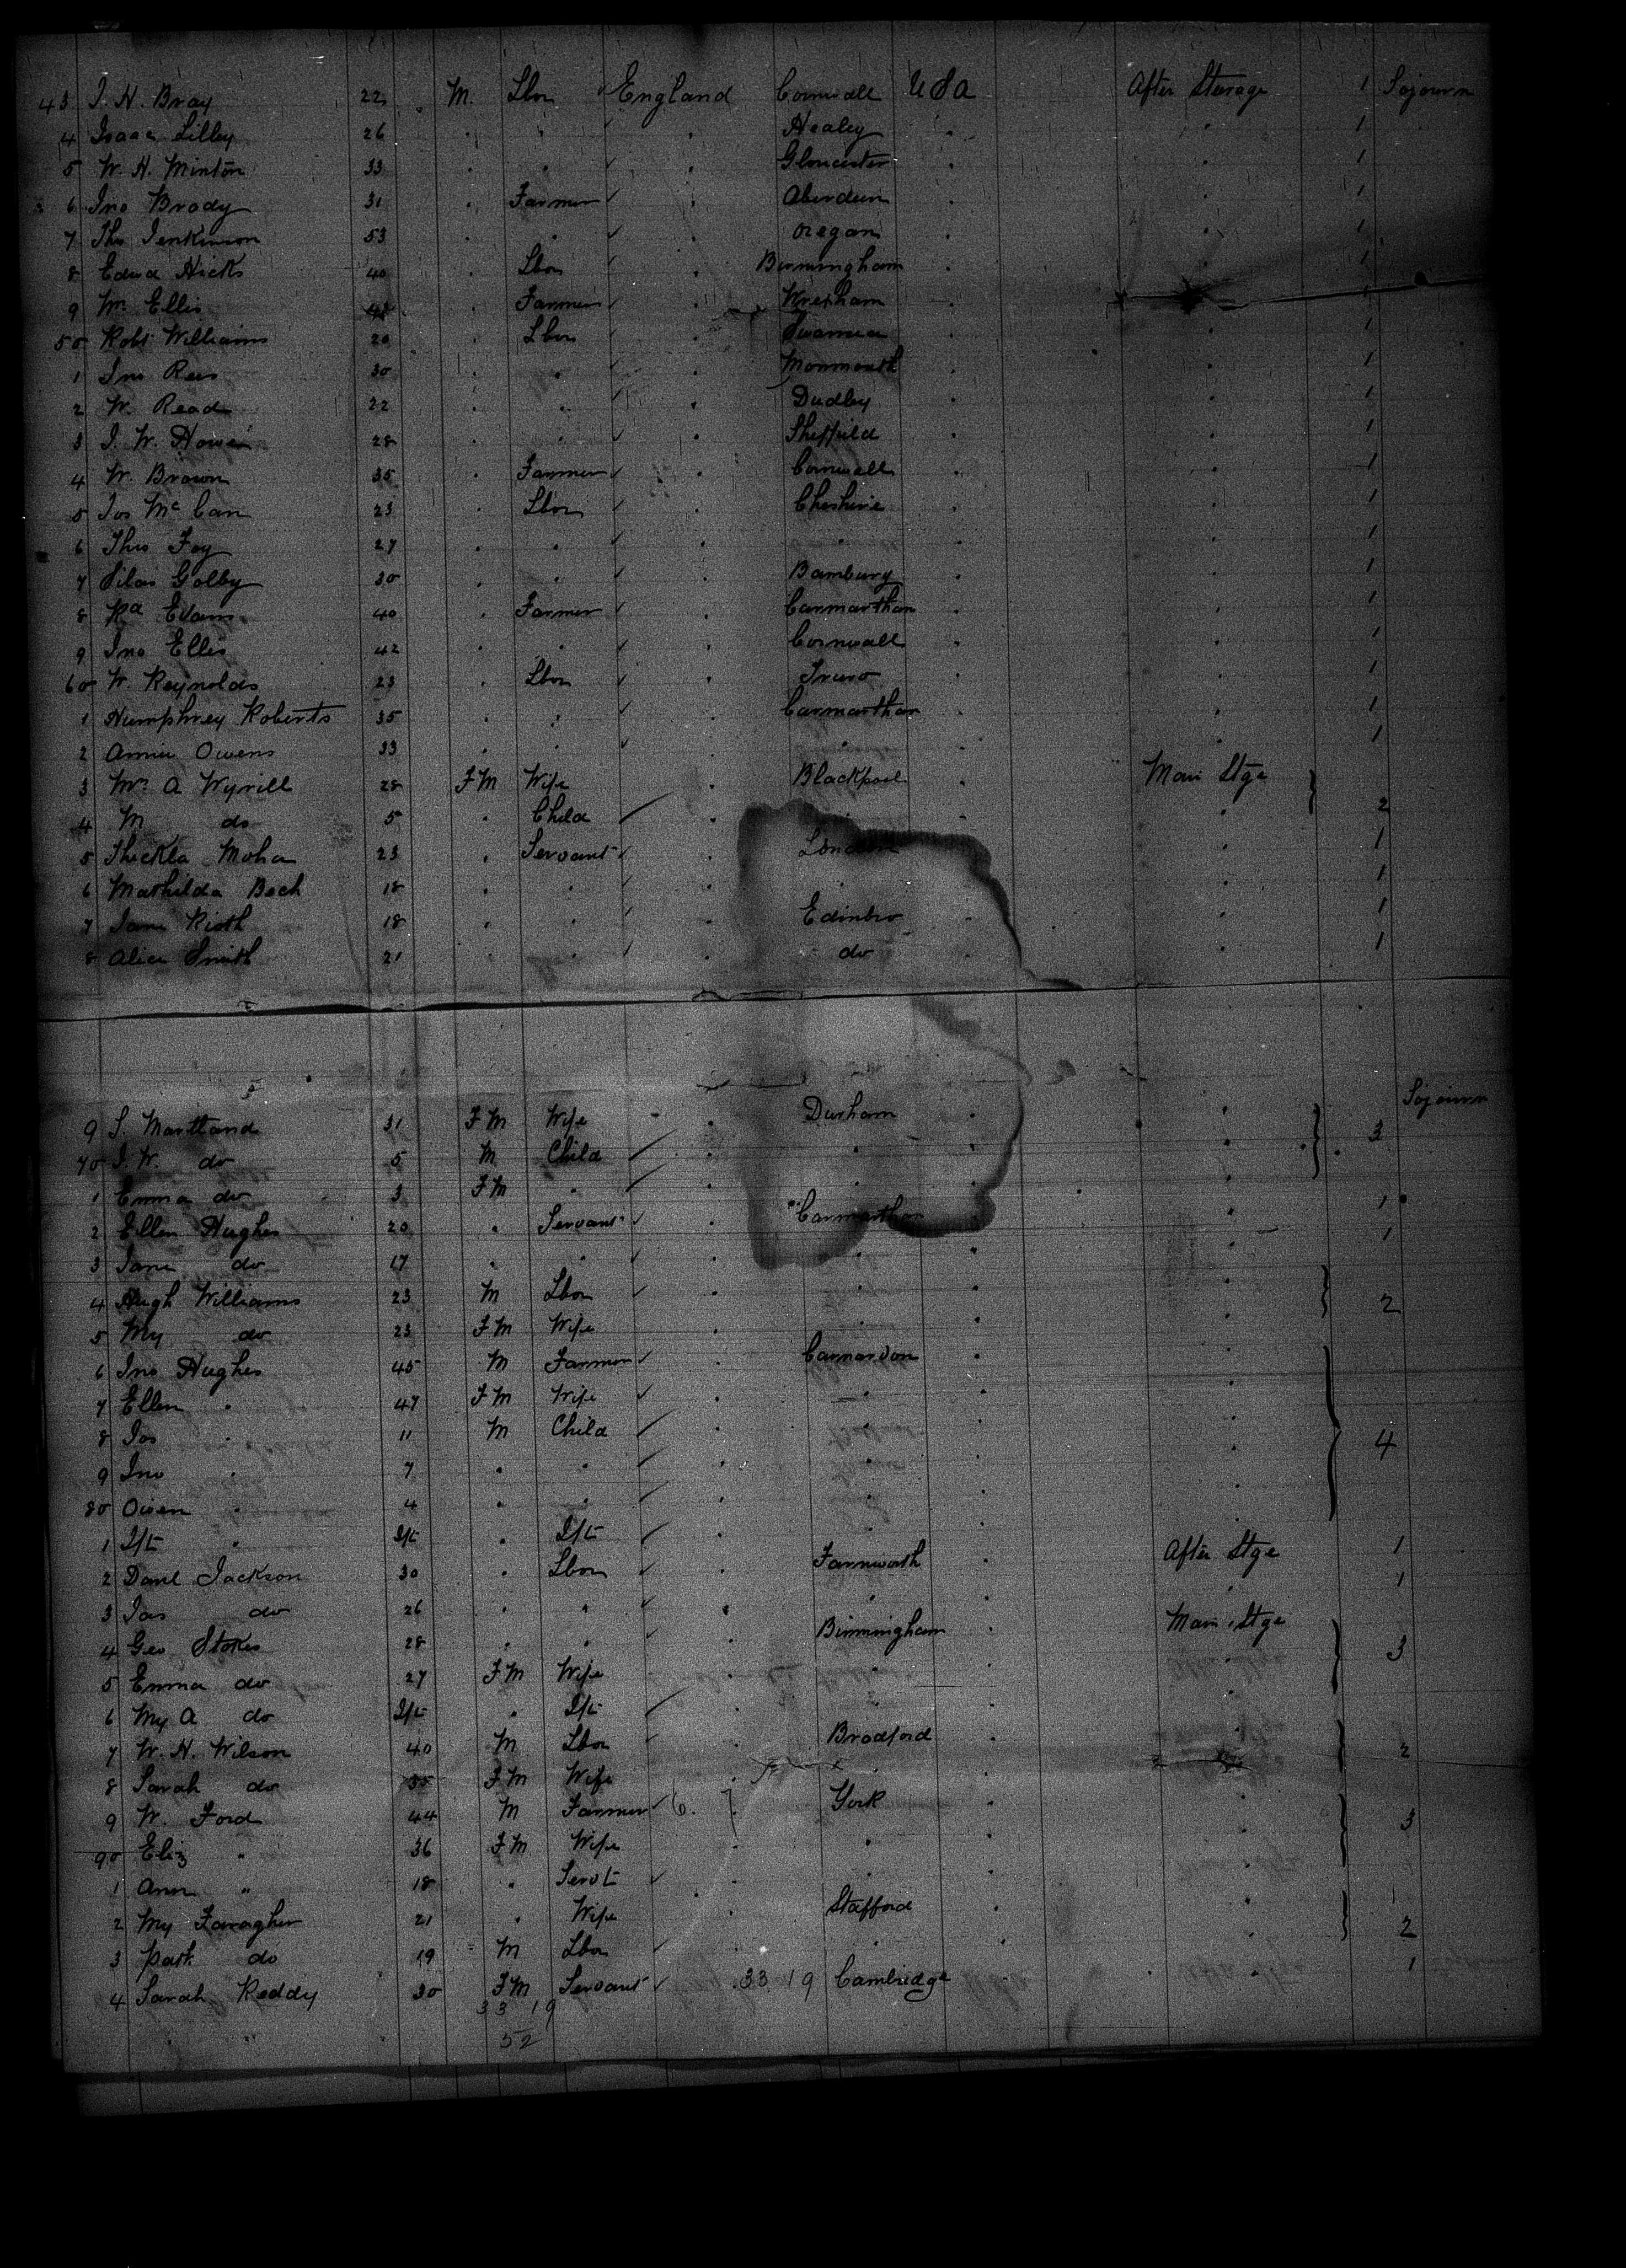 43 J. H. Bray 22 M. Lbor England Cornwall U S A After Sterage 1 Sojourn
4 Isaac Lilley 26 " " " Healey " " 1
5 W. H. Minton 33 " " " Gloucester " " 1
6 Jno Brody 31 " Farmer " Aberdeen " " 1
7 Thos Jenkinson 53 " " " " " 1
8 Edwd Hicks 40 " Lbor " Birmingham " " 1
9 Wm Ellis " Farmer " Wrexham " " 1
50 Robt Williams 20 " Lbor " Swansea " " 1
1 Jno Rees 30 " " " Monmouth " " 1
2 W. Read 22 " " " Dudley " " 1
3 J. W. Howe 28 " " " Sheffield " " 1
4 W. Brown 35 " Farmer " Cornwall " " 1
5 Jos Mc Can 23 " Lbor " Cheshire " " 1
6 Thos Foy 27 " " " " " " 1
7 Silas Golby 30 " " " Bamburg " " 1
8 Rd Evans 40 " Farmer " Carmarthan " " 1
9 Jno Ellis 42 " " " Cornwall " " 1
60 W. Reynolds 23 " Lbor " Truro " " 1
1 Humphrey Roberts 35 " " " Carmarthan " " 1
2 Annie Owens 33 " " " " " " 1
3 Mrs A Wyrill 28 F M Wife " Blackpool " Main Stge
4 M do 5 " Child " " " " 2
5 Thickla Moha 23 " Servant " London " " 1
6 Mathilda Bech 18 " " " " " " 1
7 Jane Rioth 18 " " " Edinbro " " 1
8 Alice Smith 21 " " " do " " 1
Sojourn
9 S. Martland 31 F M Wife " Durham " " 3
70 J. W. do 5 M Child " " " "
1 Emma do 3 F M " " " " "
2 Ellen Hughes 20 " Servant " Carmarthan " " 1
3 Jane do 17 " " " " " " 1
4 Hugh Williams 23 M Lbor " " " " 2
5 My do 23 F M Wife " " " "
6 Jno Hughes 45 M Farmer " Carnarvon " " 4
7 Ellen " 47 F M Wife " " " "
8 Jos " 11 M Child " " " "
9 Jno " 7 " " " " " "
80 Owen " 4 " " " " " "
1 Ift " Ift " Ift " " " "
2 Danl Jackson 30 " Lbor " Farnworth " After Stge 1
3 Jas do 26 " " " " " " 1
4 Geo Stokes 28 " " " Birmingham " Main Stge 3
5 Emma do 27 F M Wife " " " "
6 My A do Ift " Ift " " " "
7 W. H. Wilson 40 M Lbor " Bradford " " 2
8 Sarah do 35 F M Wife " " " "
9 W. Ford 44 M Farmer 6. " York " " 3
90 Eliz " 36 F M Wife " " " "
1 Ann " 18 " Servt " " " "
2 My Faragher 21 " Wife " Stafford " " 2
3 Patk do 19 M Lbor " " " "
4 Sarah Reddy 30 F M Servant 33 19 Cambridge " " 1
33 19
52